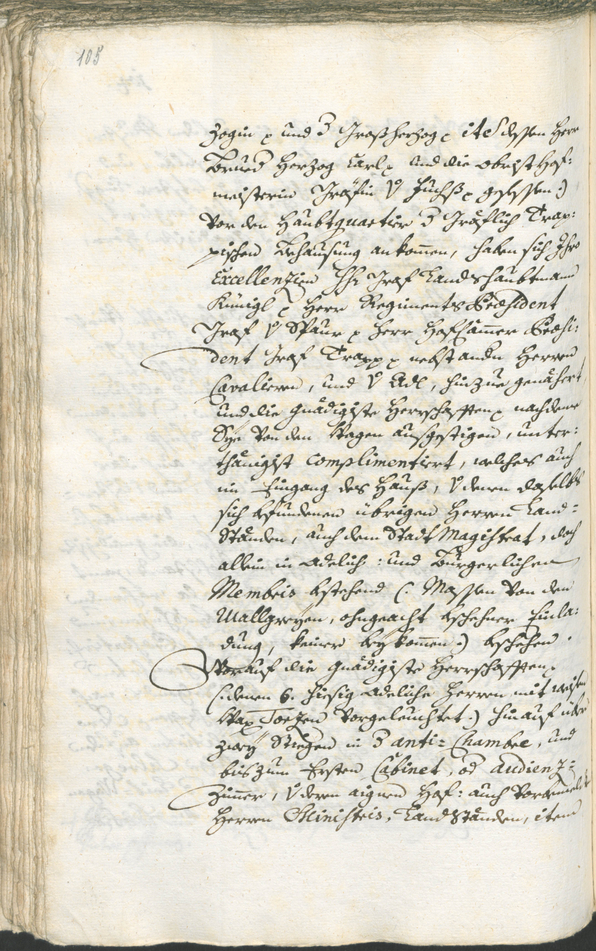 105
Zogin p und d Großherzog p ite dessen Herr
Brued Herzog Carl p und die obrist Hof:
meisterin Gräfin v Fuchß p gesessen)
Vor den Haubtquartier d Gräflich Trap:
pischen Behausung ankomen, haben sich Ihro
Excellenzien Hr Graf Landshaubtmann
Künigl p Herr Regiments Præsident
Graf v Spaur p Herr Hofkamer Præsi:
dent Graf Trapp p nebst andn Herren
Cavalieren, und v Adl, hinzue genähert
und die gnädigiste Herrschafften nachdeme
Sye von den Wagen ausgestigen, unter:
thänigist complimentiert, welches auch
im Eingang des Hauß, v denen daselbst
sich befundenen übrigen Herren Land=
Ständen, auch dem Stadt Magistrat, doch
allein in Adelich: und Burgerlichen
Membris bestehend (: Massen von den
Wallgreyen, ohngeacht beschehner Einla:
dung, keiner beykomen:) beschehen.
Worauf die gnädigiste Herrschafften
(: denen 6. hiesig Adeliche Herren mit weisen
Wax Torzen vorgeleuchtet:) hinauf über
zway Stiegen in d anti=Chambre, und
bis zum Ersten Cabinet, od audienz=
Zimer, v deren aignen Hof: auch
Herren Ministris, Landständen, item